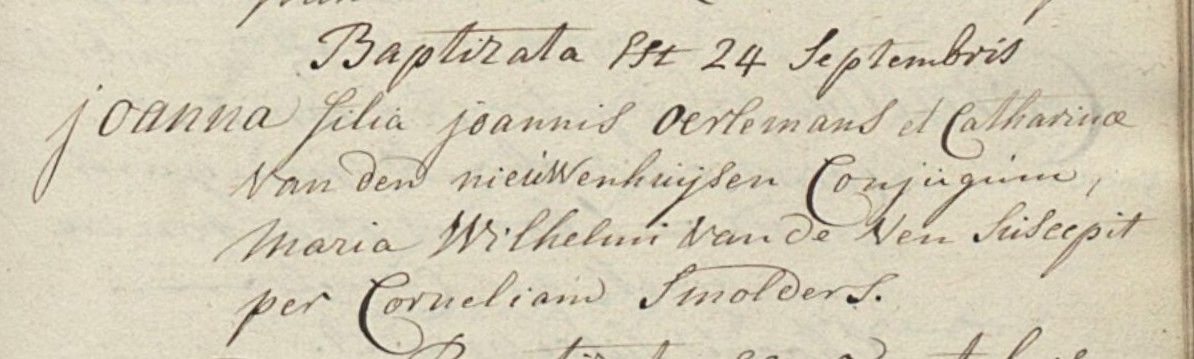 Baptizata Est 24 Septembris
joanna filia joannis Oerlemans et Catharinæ
Van den nieuwenhuijsen Conjugum,
Maria Wilhelmi Van de Ven Suscepit
per Corneliam Smolders.